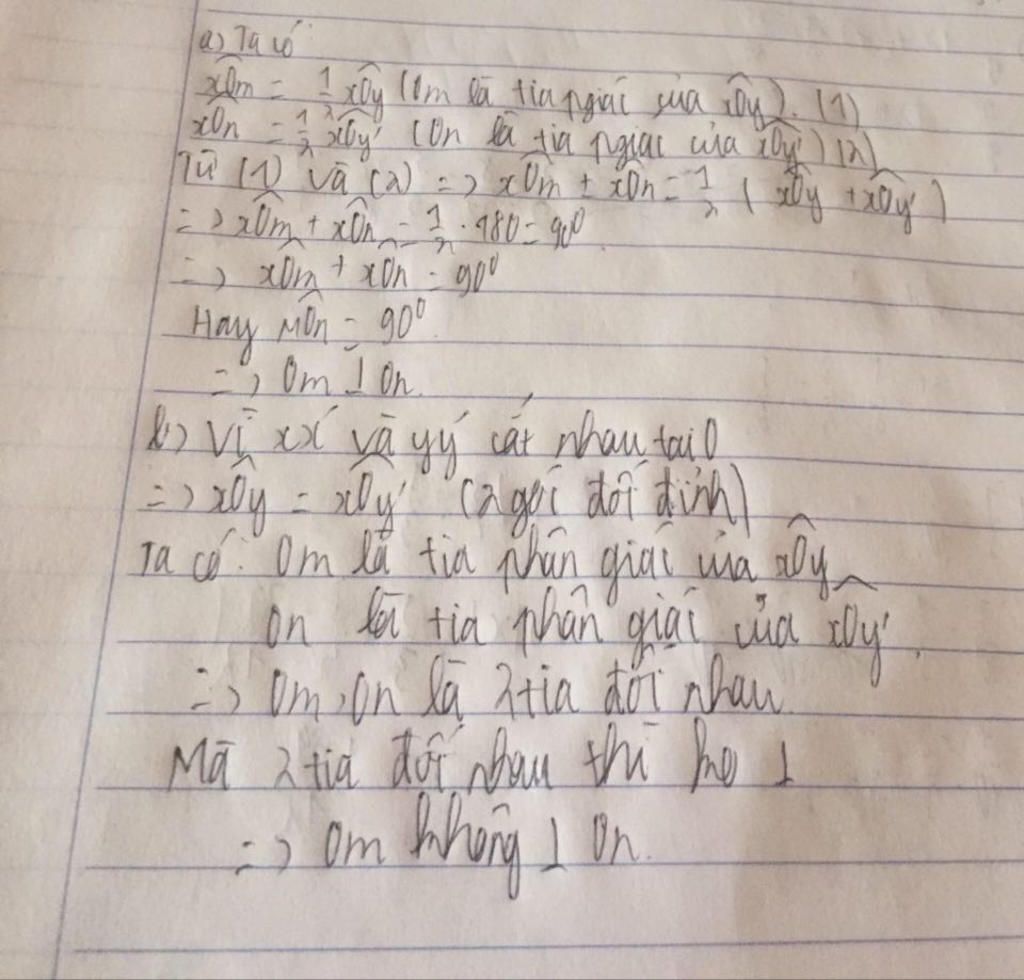 a) Ta có
xÔm = 1/2 xÔy (Om là tia pgiác của xÔy). (1)
xÔn = 1/2 xÔy' (On là tia pgiác của xÔy') (2)
Từ (1) và (2) => xÔm + xÔn = 1/2 ( xÔy + xÔy' )
=> xÔm + xÔn = 1/2 . 180 = 90⁰
=> xÔm + xÔn = 90⁰
Hay MÔn = 90⁰.
=> Om ⊥ On.
b) Vì xx' và yy' cắt nhau tại O
=> xÔy = xÔy' (2 góc đối đỉnh)
Ta có: Om là tia phân giác của xÔy
On là tia phân giác của xÔy'.
=> Om, On là 2 tia đối nhau
Mà 2 tia đối nhau thì ko ⊥
=> Om không ⊥ On.